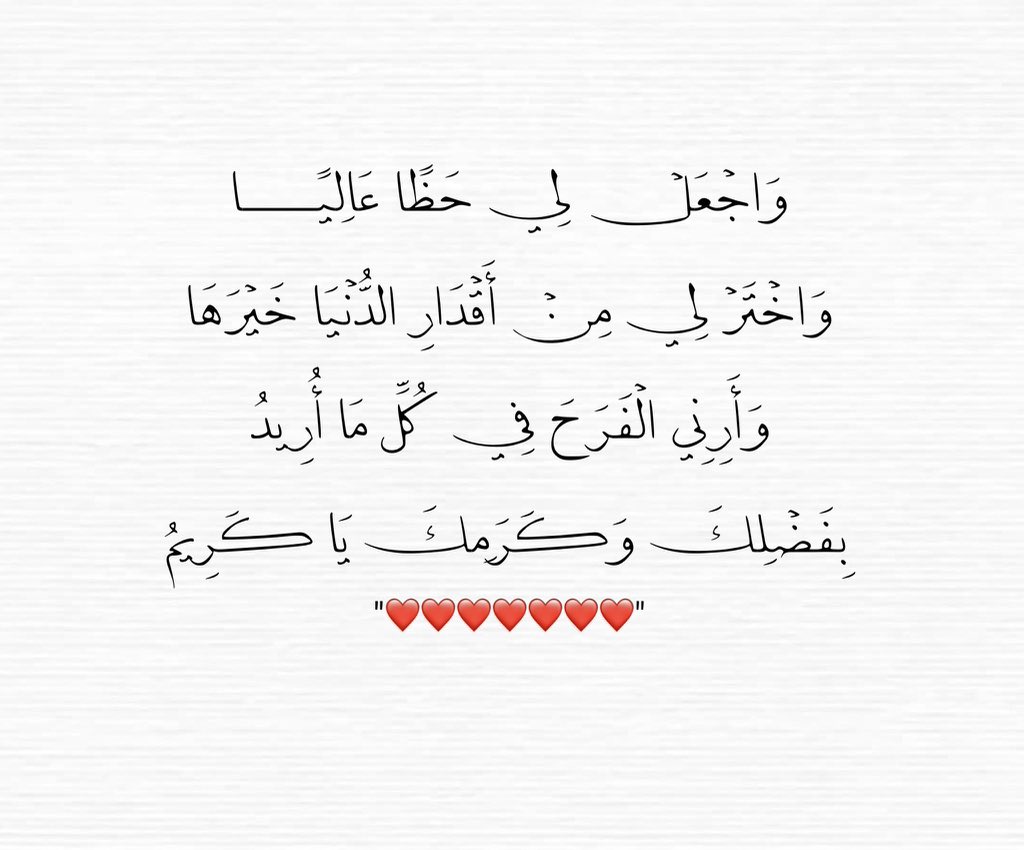 وَاجْعَلْ لِي حَظًّا عَالِيًـــا
وَاخْتَرْ لِي مِنْ أَقْدَارِ الدُّنْيَا خَيْرَهَا
وَأَرِنِي الْفَرَحَ فِي كُلِّ مَا أُرِيدُ
بِفَضْلِكَ وَكَرَمِكَ يَا كَرِيمُ
"❤️❤️❤️❤️❤️❤️❤️"